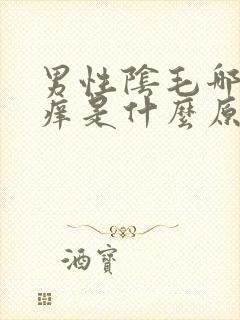 男性陰毛部
痒是什麼原
酒寶